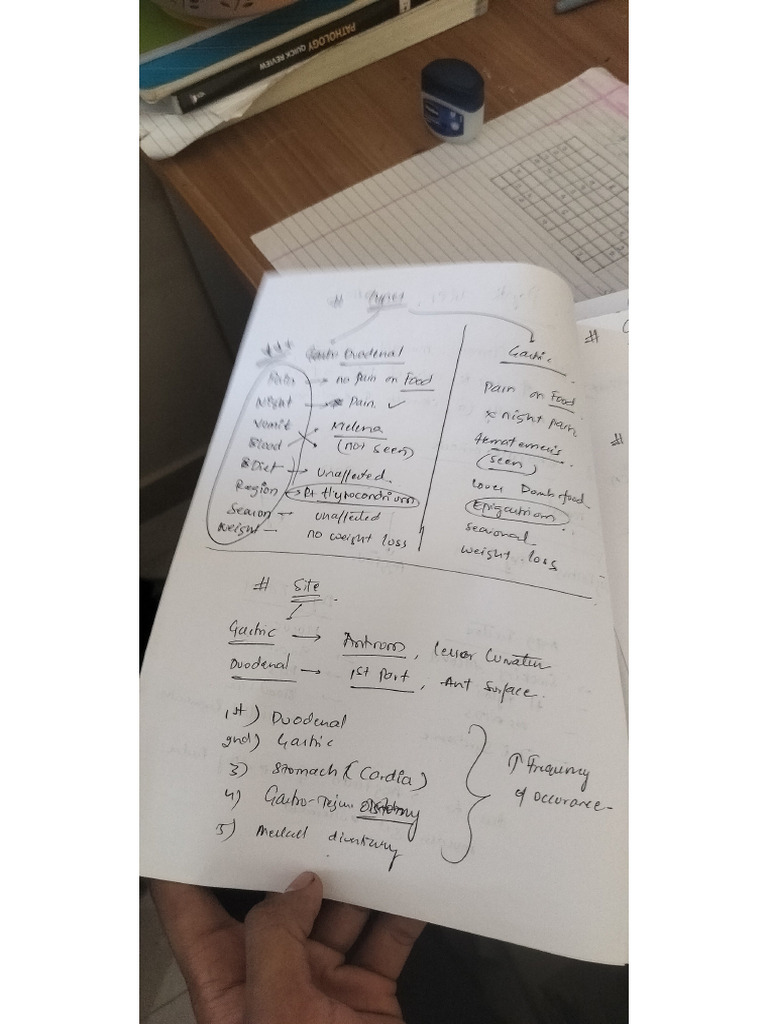 PATHOLOGY QUICK REVIEW
# Types
*** Duodenal
Gastric
Pain → no pain on Food
Pain on Food
Night → Pain ✓
x night pain
Vomit
Melena
Blood
(not seen)
(seen)
Diet → unaffected
Region → Rt Hypocondrium
Epigastrium
Season → unaffected
seasonal
Weight — no weight loss
weight loss
# Site
Gastric → Antrum, lesser
Duodenal → 1st Part, Ant Surface.
1st) Duodenal
2nd) Gastric
3) Stomach (Cardia)
4) Gastro-Jejun
5)
↑ Frequency
of occurance
#
#